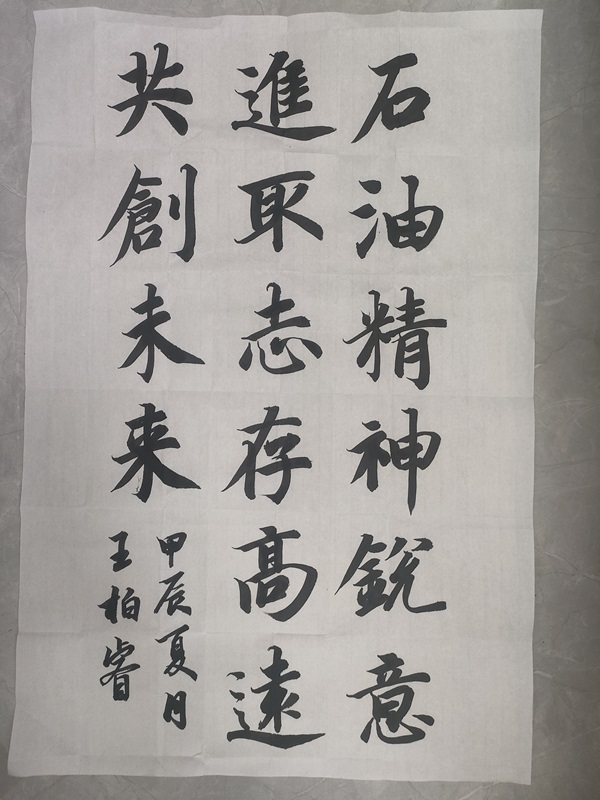 石油精神銳意
進取志存髙遠
共創未来
甲辰夏月
王柏睿